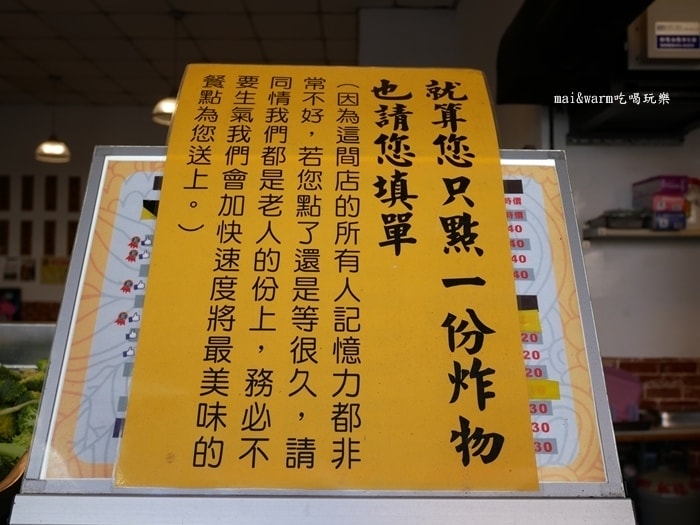 就算您只點一份炸物
也請您填單
（因為這間店的所有人記憶力都非
常不好，若您點了還是等很久，請
同情我們都是老人的份上，務必不
要生氣我們會加快速度將最美味的
餐點為您送上。）
mai&warm吃喝玩樂
時價
時價
40
40
40
20
20
30
30
30